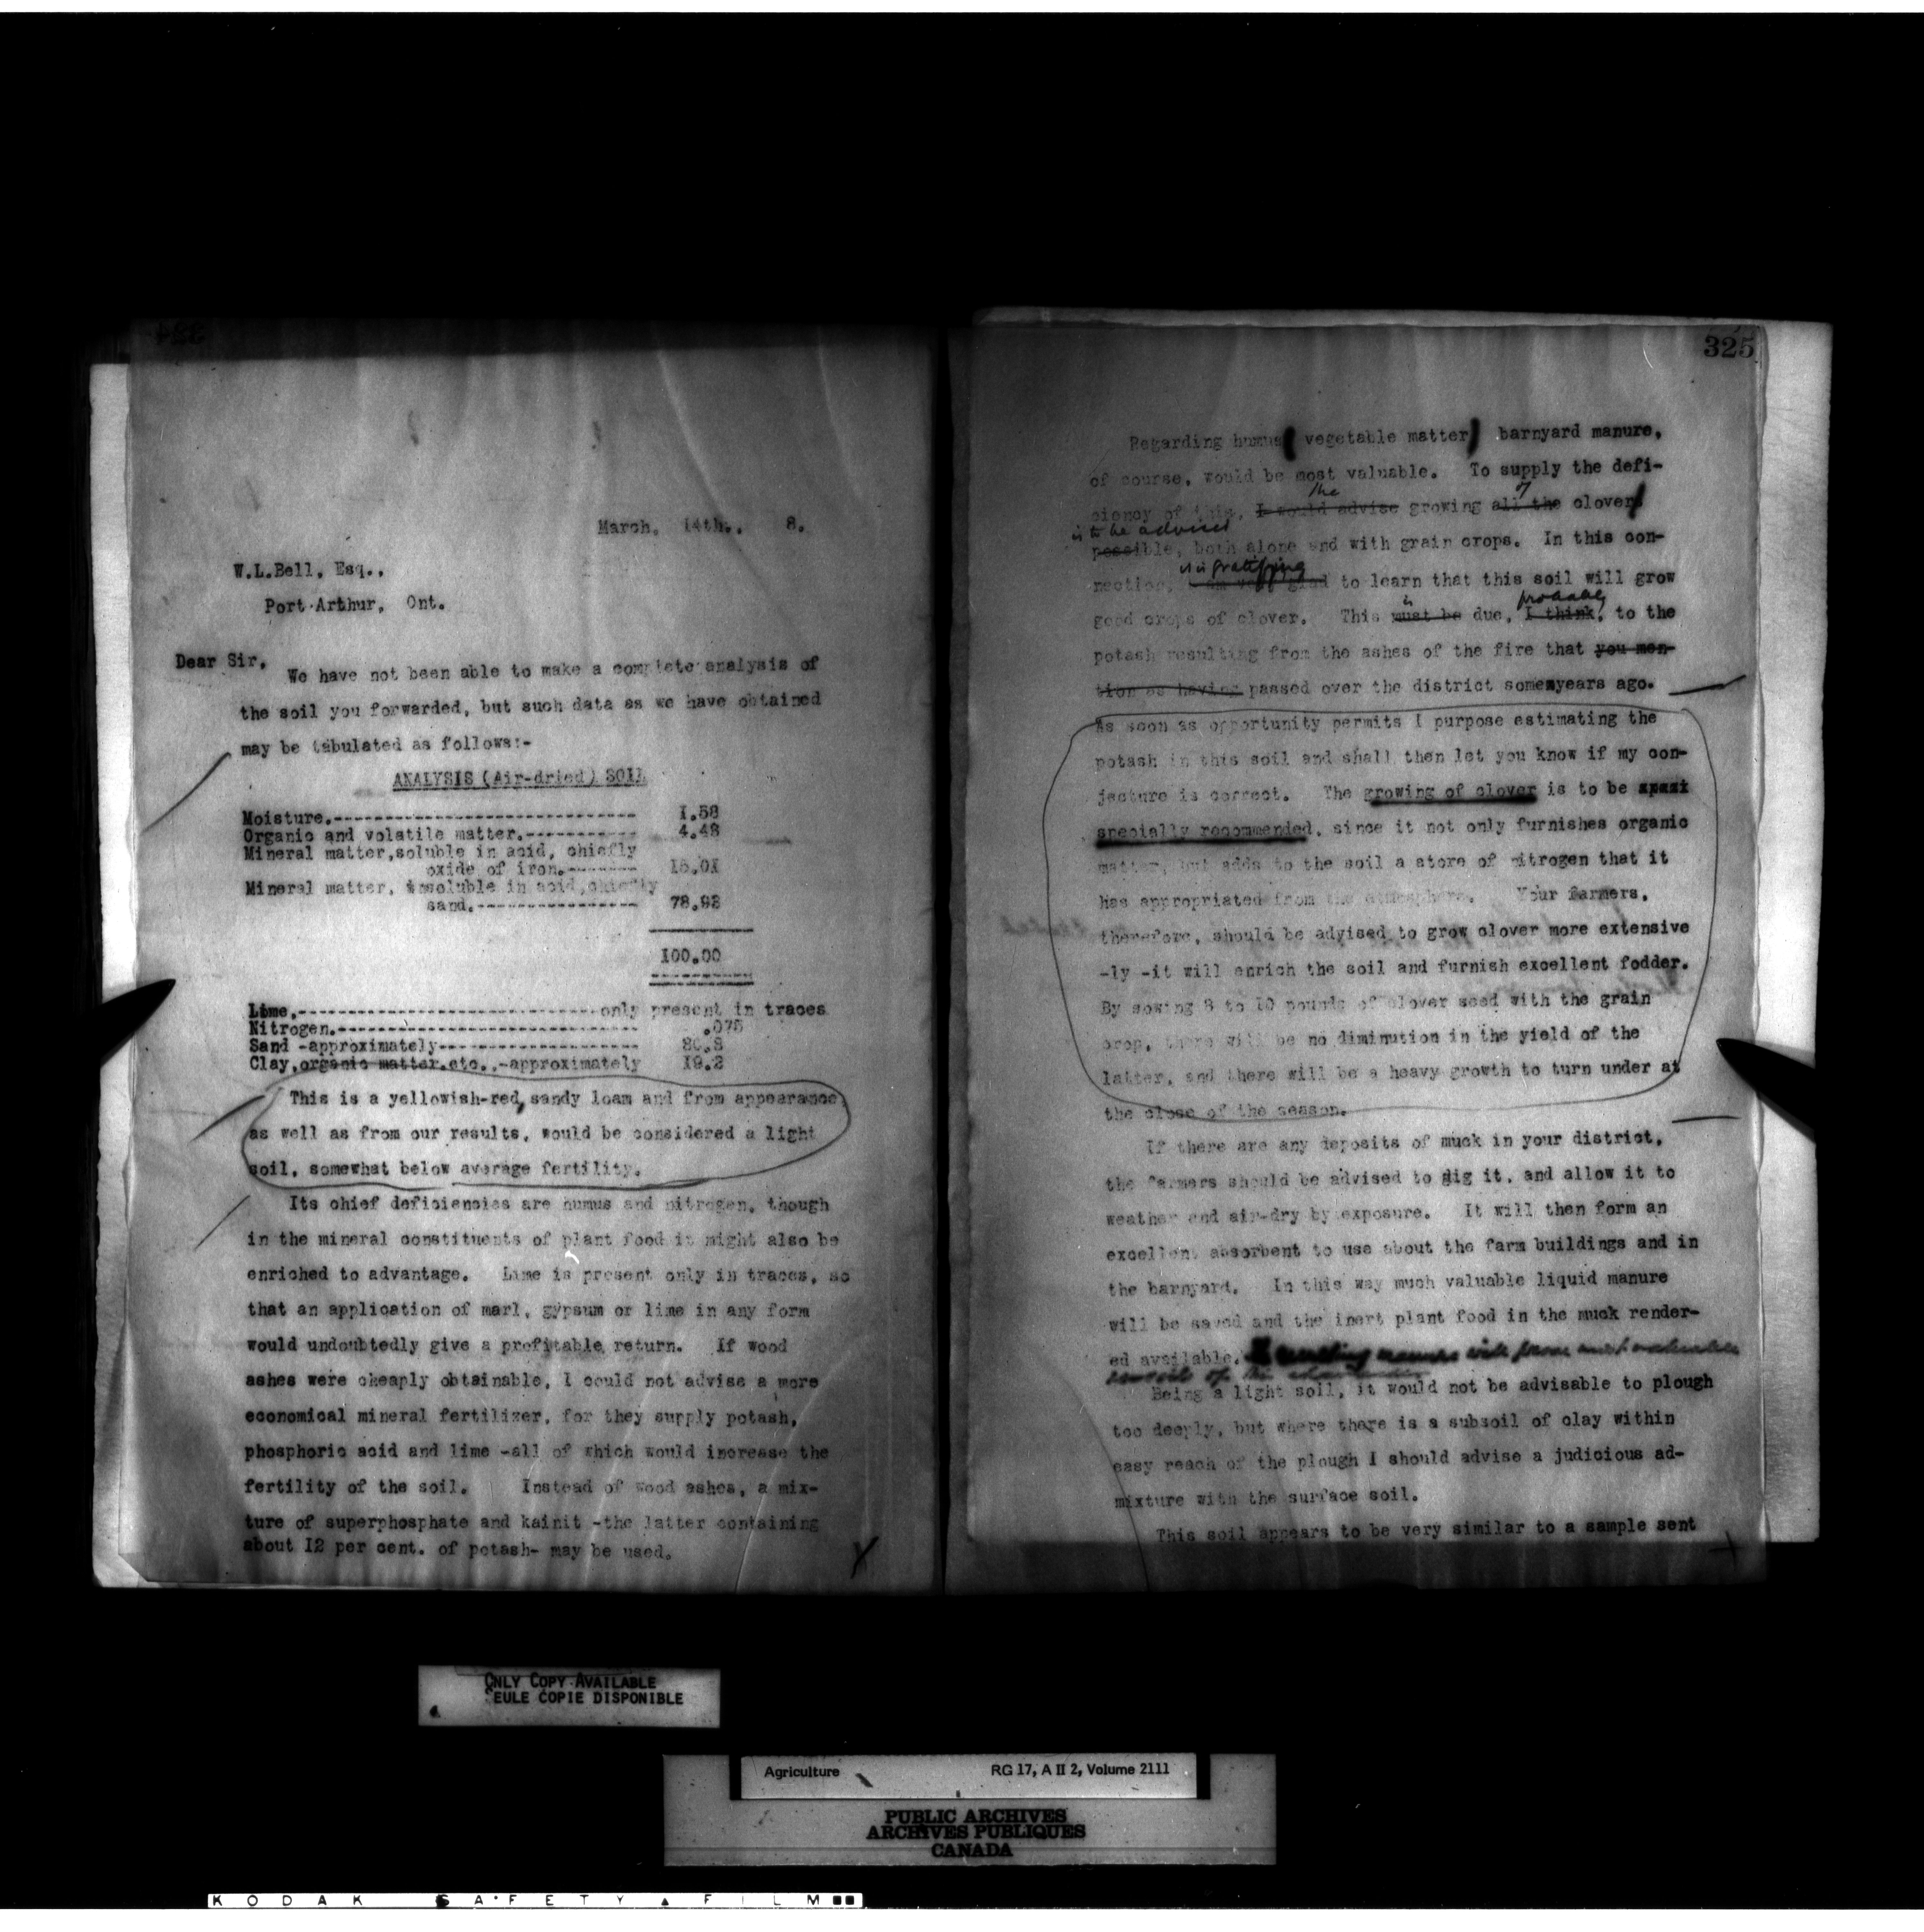 324
March, 14th., 8.
W.L.Bell, Esq.,
Port Arthur, Ont.
Dear Sir,
We have not been able to make a complete analysis of
the soil you forwarded, but such data as we have obtained
may be tabulated as follows:-
ANALYSIS (Air-dried) SOIL
Moisture.------------------------------ 1.58
Organic and volatile matter.----------- 4.48
Mineral matter,soluble in acid, chiefly
oxide of iron.------- 15.01
Mineral matter, insoluble in acid,chiefly
sand.---------------- 78.93
100.00
Lime,-----------------------------only present in traces
Nitrogen.------------------------------ .075
Sand -approximately-------------------- 80.8
Clay,organic matter.etc.,-approximately 19.2
This is a yellowish-red, sandy loam and from appearance
as well as from our results, would be considered a light
soil, somewhat below average fertility.
Its chief deficiencies are humus and nitrogen, though
in the mineral constituents of plant food it might also be
enriched to advantage. Lime is present only in traces, so
that an application of marl, gypsum or lime in any form
would undoubtedly give a profitable return. If wood
ashes were cheaply obtainable, I could not advise a more
economical mineral fertilizer, for they supply potash,
phosphoric acid and lime -all of which would increase the
fertility of the soil. Instead of wood ashes, a mix-
ture of superphosphate and kainit -the latter containing
about 12 per cent. of potash- may be used.
325
Regarding humus ( vegetable matter) barnyard manure,
of course, would be most valuable. To supply the defi-
the of
ciency of this, I would advise growing all the clover
is to be advised
possible, both alone and with grain crops. In this con-
it is gratifying
nection, I am very glad to learn that this soil will grow
is probably
good crops of clover. This must be due, I think, to the
potash resulting from the ashes of the fire that you men-
tion as having passed over the district some years ago.
As soon as opportunity permits I purpose estimating the
potash in this soil and shall then let you know if my con-
jecture is correct. The growing of clover is to be
specially recommended, since it not only furnishes organic
matter, but adds to the soil a store of nitrogen that it
has appropriated from the atmosphere. Your farmers,
therefore, should be advised to grow clover more extensive
-ly -it will enrich the soil and furnish excellent fodder.
By sowing 8 to 10 pounds of clover seed with the grain
crop, there will be no diminution in the yield of the
latter, and there will be a heavy growth to turn under at
the close of the season.
If there are any deposits of muck in your district,
the farmers should be advised to dig it, and allow it to
weather and air-dry by exposure. It will then form an
excellent absorbent to use about the farm buildings and in
the barnyard. In this way much valuable liquid manure
will be saved and the inert plant food in the muck render-
ed available. resulting manure will prove most valuable
soils of this character
Being a light soil, it would not be advisable to plough
too deeply, but where there is a subsoil of clay within
easy reach of the plough I should advise a judicious ad-
mixture with the surface soil.
This soil appears to be very similar to a sample sent
ONLY COPY AVAILABLE
SEULE COPIE DISPONIBLE
Agriculture RG 17, A II 2, Volume 2111
PUBLIC ARCHIVES
ARCHIVES PUBLIQUES
CANADA
KODAK SAFETY FILM